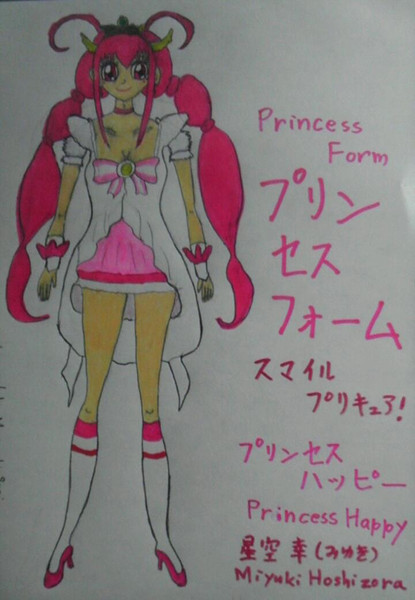 Princess
Form
プリン
セス
フォーム
スマイル
プリキュア!
プリンセス
ハッピー
Princess Happy
星空 幸(みゆき)
Miyuki Hoshizora